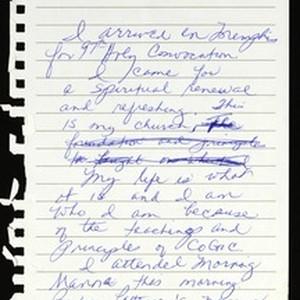 I arrived in Memphis
for 97th Holy Convocation
I came for
a spiritual renewal
and refreshing. This
is my church, the
foundation and principles
My life is what
it is and I am
who I am because
of the teachings and
principles of COGIC
I attended Morning
Manna this morning